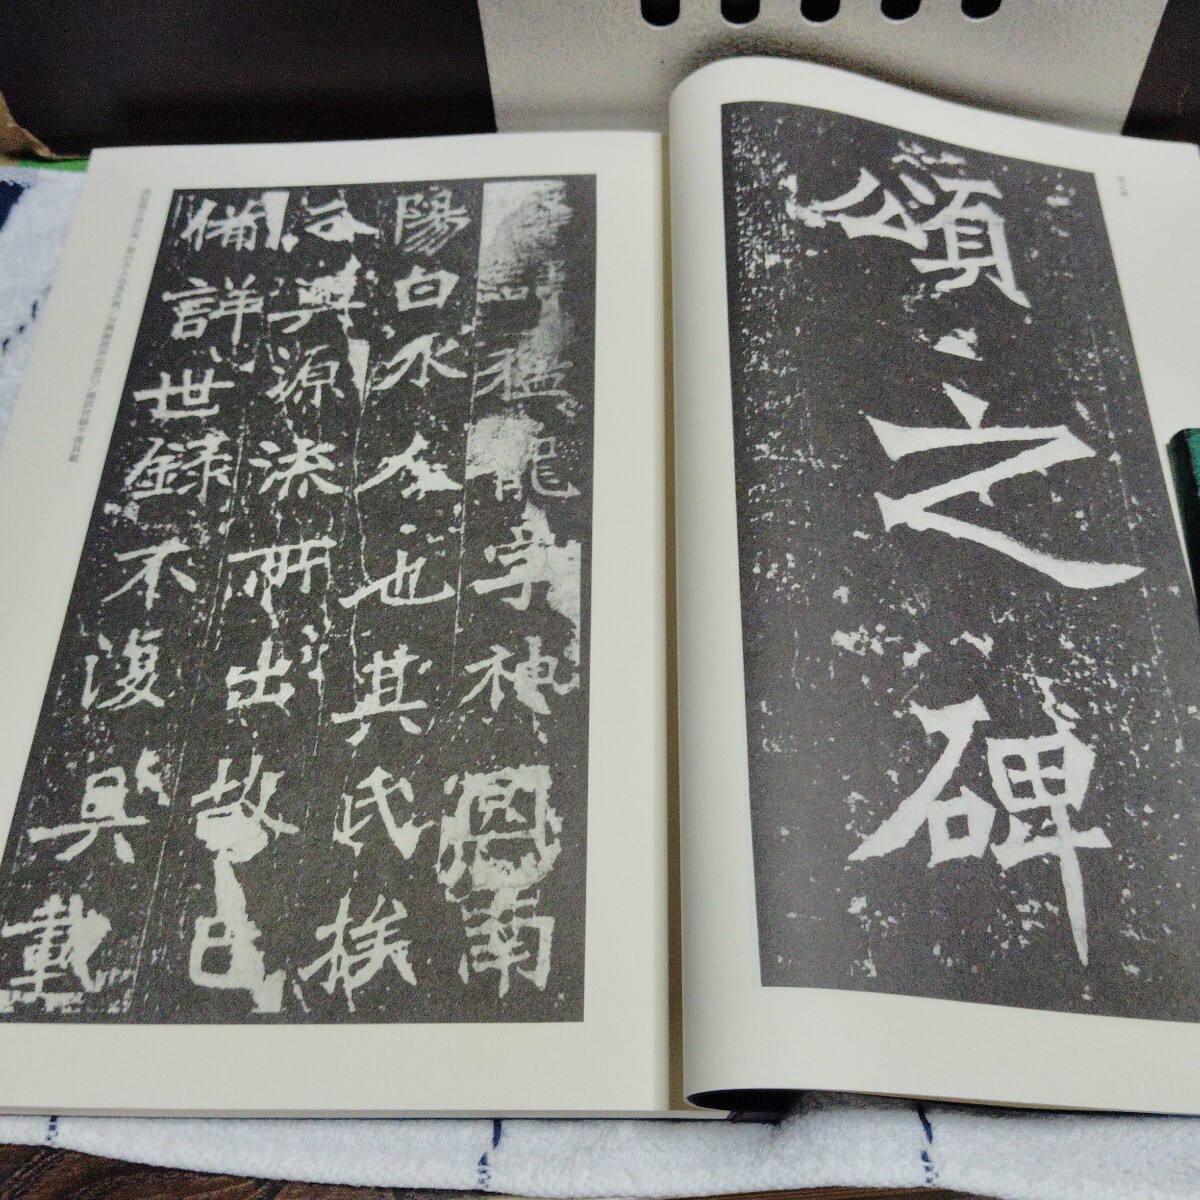 頌之碑
君諱猛龍字神囧南
陽白水人也其氏族
分興源流所出故已
備詳世録不復具載